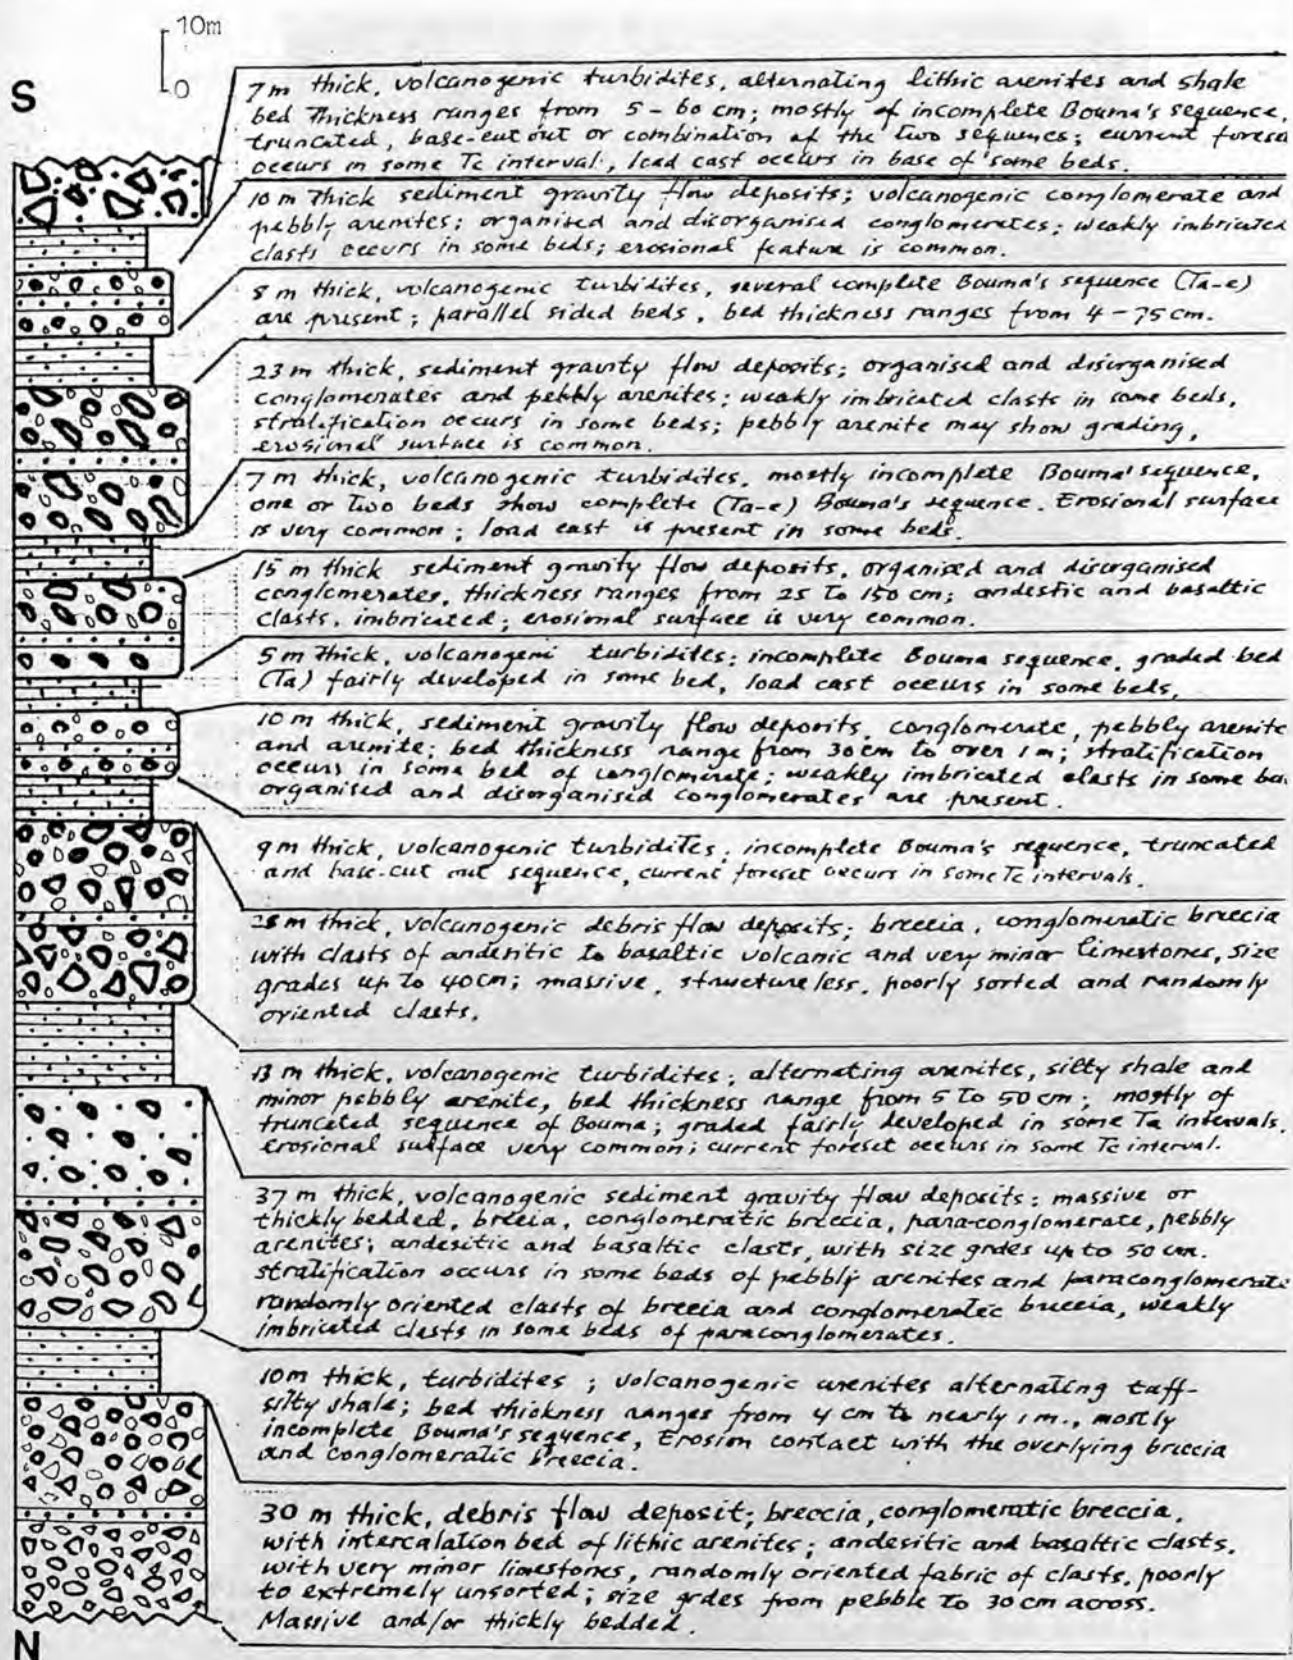 10m
0
S
7m thick, volcanogenic turbidites, alternating lithic arenites and shale
bed thickness ranges from 5 - 60 cm; mostly of incomplete Bouma's sequence,
truncated, base-cut out or combination of the two sequence; current forese
occurs in some Tc interval, load cast occurs in base of some beds.
10 m thick sediment gravity flow deposits; volcanogenic conglomerate and
pebbly arenites; organised and disorganised conglomerates; weakly imbricated
clasts occurs in some beds; erosional feature is common.
8 m thick, volcanogenic turbidites, several complete Bouma's sequence (Ta-e)
are present; parallel sided beds, bed thickness ranges from 4 - 75 cm.
23 m thick, sediment gravity flow deposits; organised and disorganised
conglomerates and pebbly arenites; weakly imbricated clasts in some beds,
stratification occurs in some beds; pebbly arenite may show grading,
erosional surface is common.
7 m thick, volcanogenic turbidites, mostly incomplete Bouma's sequence,
one or two beds show complete (Ta-e) Bouma's sequence. Erosional surface
is very common; load cast is present in some beds.
15 m thick sediment gravity flow deposits, organised and disorganised
conglomerates, thickness ranges from 25 to 150 cm; andestic and basaltic
clasts, imbricated; erosional surface is very common.
5 m thick, volcanogeni turbidites; incomplete Bouma sequence, graded bed
(Ta) fairly developed in some bed, load cast occurs in some beds,
10 m thick, sediment gravity flow deposits, conglomerate, pebbly arenite
and arenite; bed thickness range from 30 cm to over 1 m; stratification
occurs in some bed of conglomerate; weakly imbricated clasts in some be
organised and disorganised conglomerates are present.
9 m thick, volcanogenic turbidites; incomplete Bouma's sequence, truncated
and base-cut out sequence, current foreset occurs in some Tc intervals.
28 m thick, volcanogenic debris flow deposits; breccia, conglomeratic breccia
with clasts of andesitic to basaltic volcanic and very minor limestones, size
grades up to 40cm; massive, structureless, poorly sorted and randomly
oriented clasts.
13 m thick, volcanogenic turbidites; alternating arenites, silty shale and
minor pebbly arenite, bed thickness range from 5 to 50 cm; mostly of
truncated sequence of Bouma; graded fairly developed in some Ta intervals.
erosional surface very common; current foreset occurs in some Tc interval.
37 m thick, volcanogenic sediment gravity flow deposits; massive or
thickly bedded, brecia, conglomeratic breccia, para-conglomerate, pebbly
arenites; andesitic and basaltic clasts, with size grdes up to 50 cm.
stratification occurs in some beds of pebbly arenites and paraconglomerate
randomly oriented clasts of breccia and conglomeratic breccia, weakly
imbricated clasts in some beds of paraconglomerates.
10m thick, turbidites ; volcanogenic arenites alternating tuff-
silty shale; bed thickness ranges from 4 cm to nearly 1 m., mostly
incomplete Bouma's sequence, Erosion contact with the overlying breccia
and conglomeratic breccia.
30 m thick, debris flow deposit; breccia, conglomeratic breccia,
with intercalation bed of lithic arenites; andesitic and basaltic clasts,
with very minor limestones, randomly oriented fabric of clasts, poorly
to extremely unsorted; size grdes from pebble to 30 cm across.
Massive and/or thickly bedded.
N